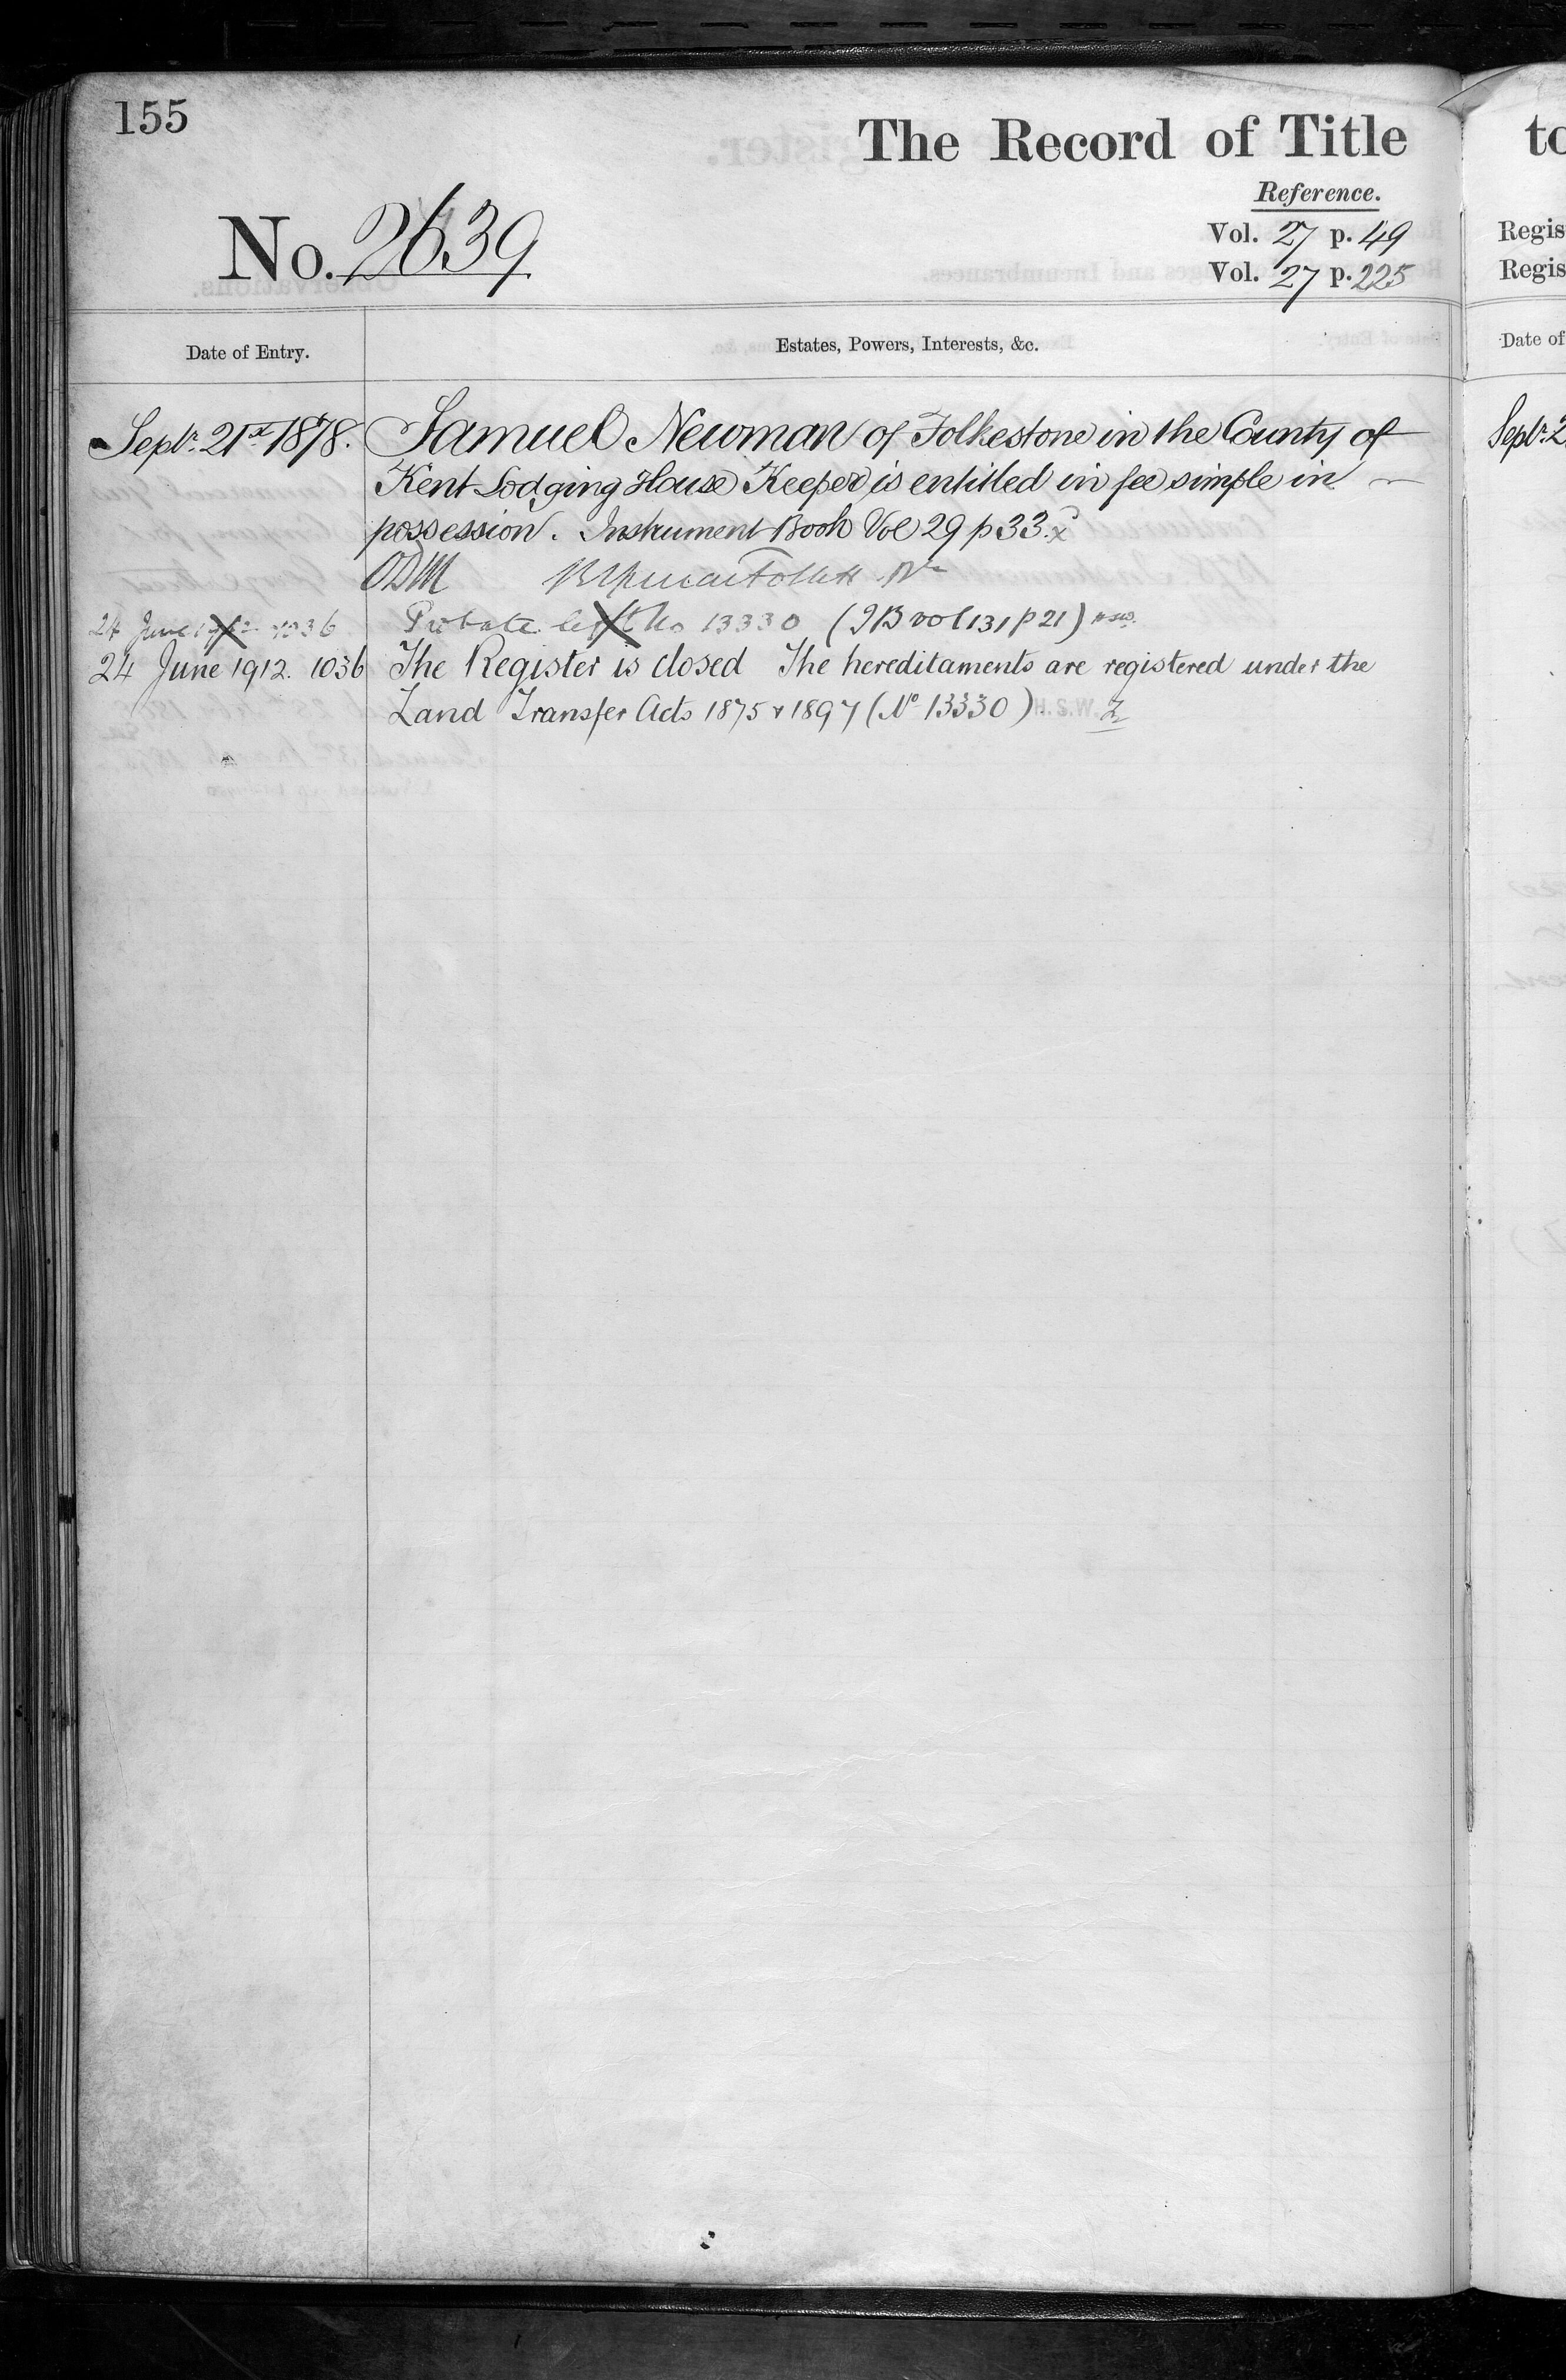 155
The Record of Title
to
Reference.
No. 2639
Vol. 27 p. 49
Regis
Vol. 27 p. 225
Regis
Date of Entry.
Estates, Powers, Interests, &c.
Date of
Septr. 21st 1878. Samuel Newman of Folkestone in the County of
Septr. 2
Kent Lodging House Keeper is entitled in fee simple in
possession. Instrument Book Vol 29 p 33.
ODM
24 June 1912 1036 Probate left No 13330 (IB vol 131 p 21)
24 June 1912. 1036 The Register is closed The hereditaments are registered under the
Land Transfer Acts 1875 & 1897 (No 13330). H.S.W.